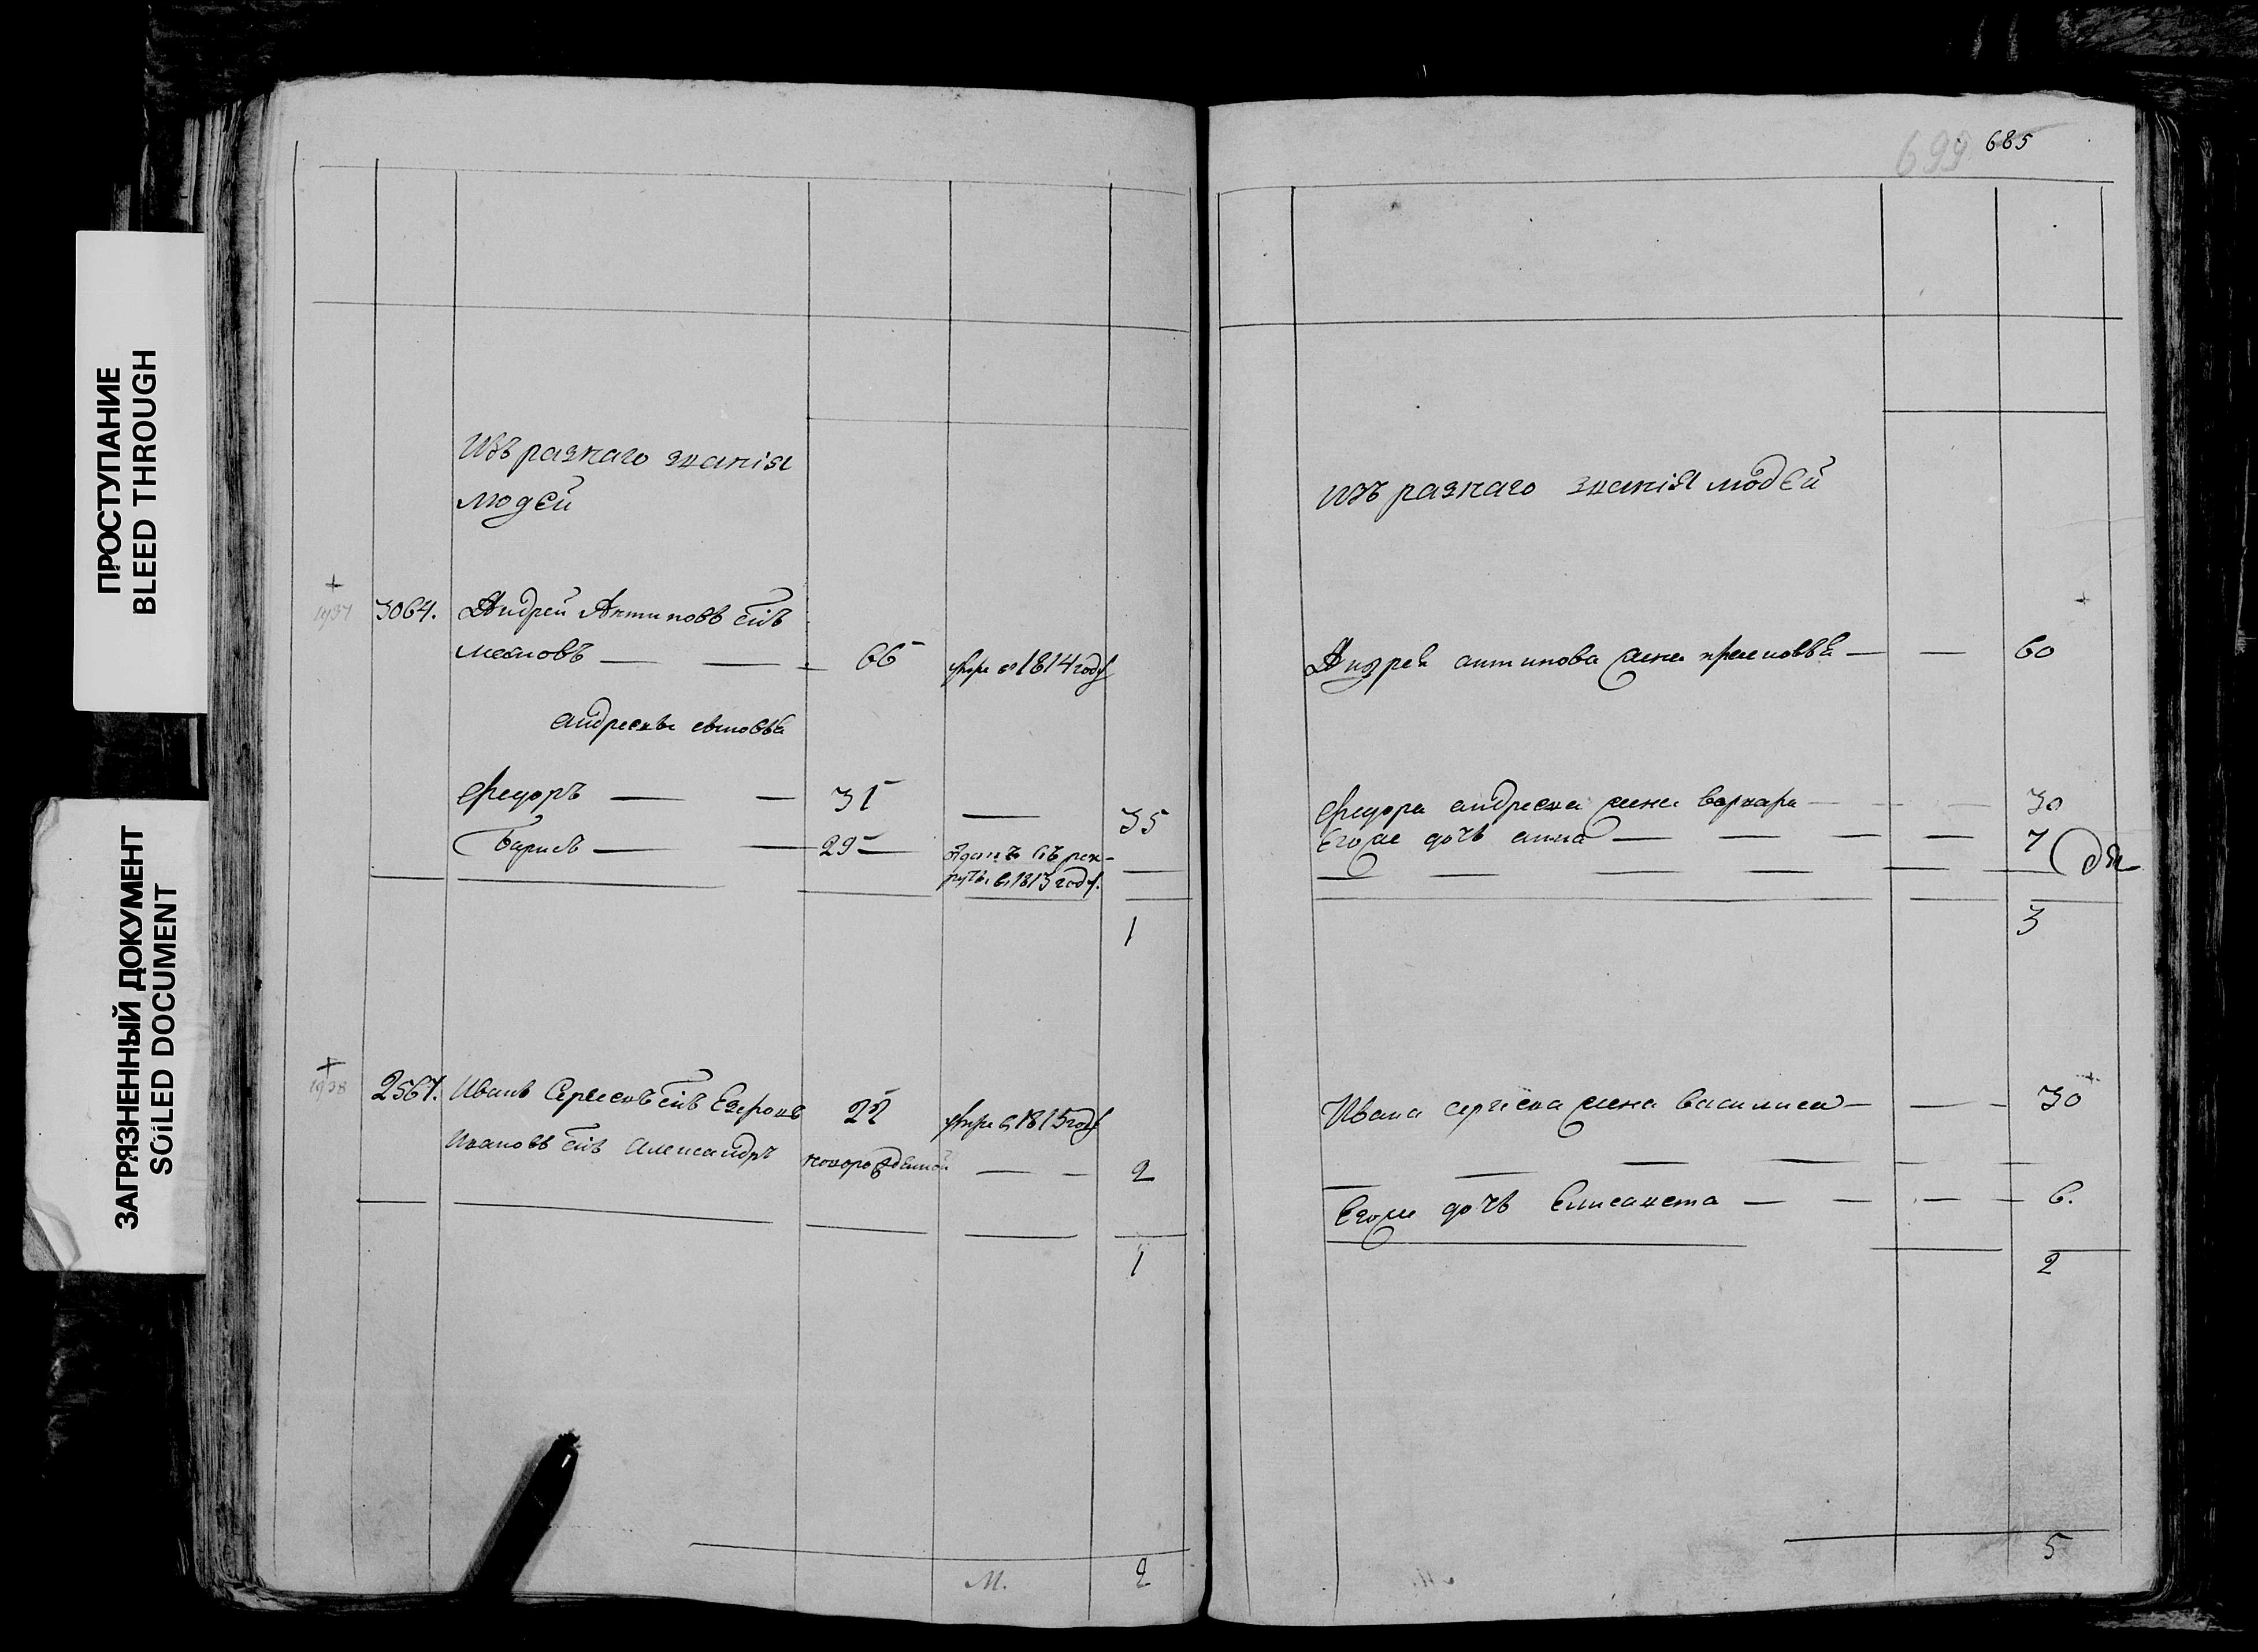 ПРОСТУПАНИЕ
BLEED THROUGH
ЗАГРЯЗНЕННЫЙ ДОКУМЕНТ
SOILED DOCUMENT
Изъ разнаго званія
людей
1937
3064. Андрей Антиповъ сынъ
66 умре в 1814 году
андреевы сыновья
Федоръ 31 — 35
Борисъ 29 отданъ въ рек-
руты в 1813 году.
1
1938
2567. Иванъ Сергеевъ сынъ 22 умре в 1815 году
Ивановъ сынъ Александръ новорожденной — — 2
1
М. 2
699 685
изъ разнаго званія людей
Андрея антипова жена — — 60
Федора андреева жена варвара — 30
Его же дочь анна — — — — 7
3
Ивана сергиева жена василиса — — - 30
Его же дочь Елисавета — — - — — 6.
2
5